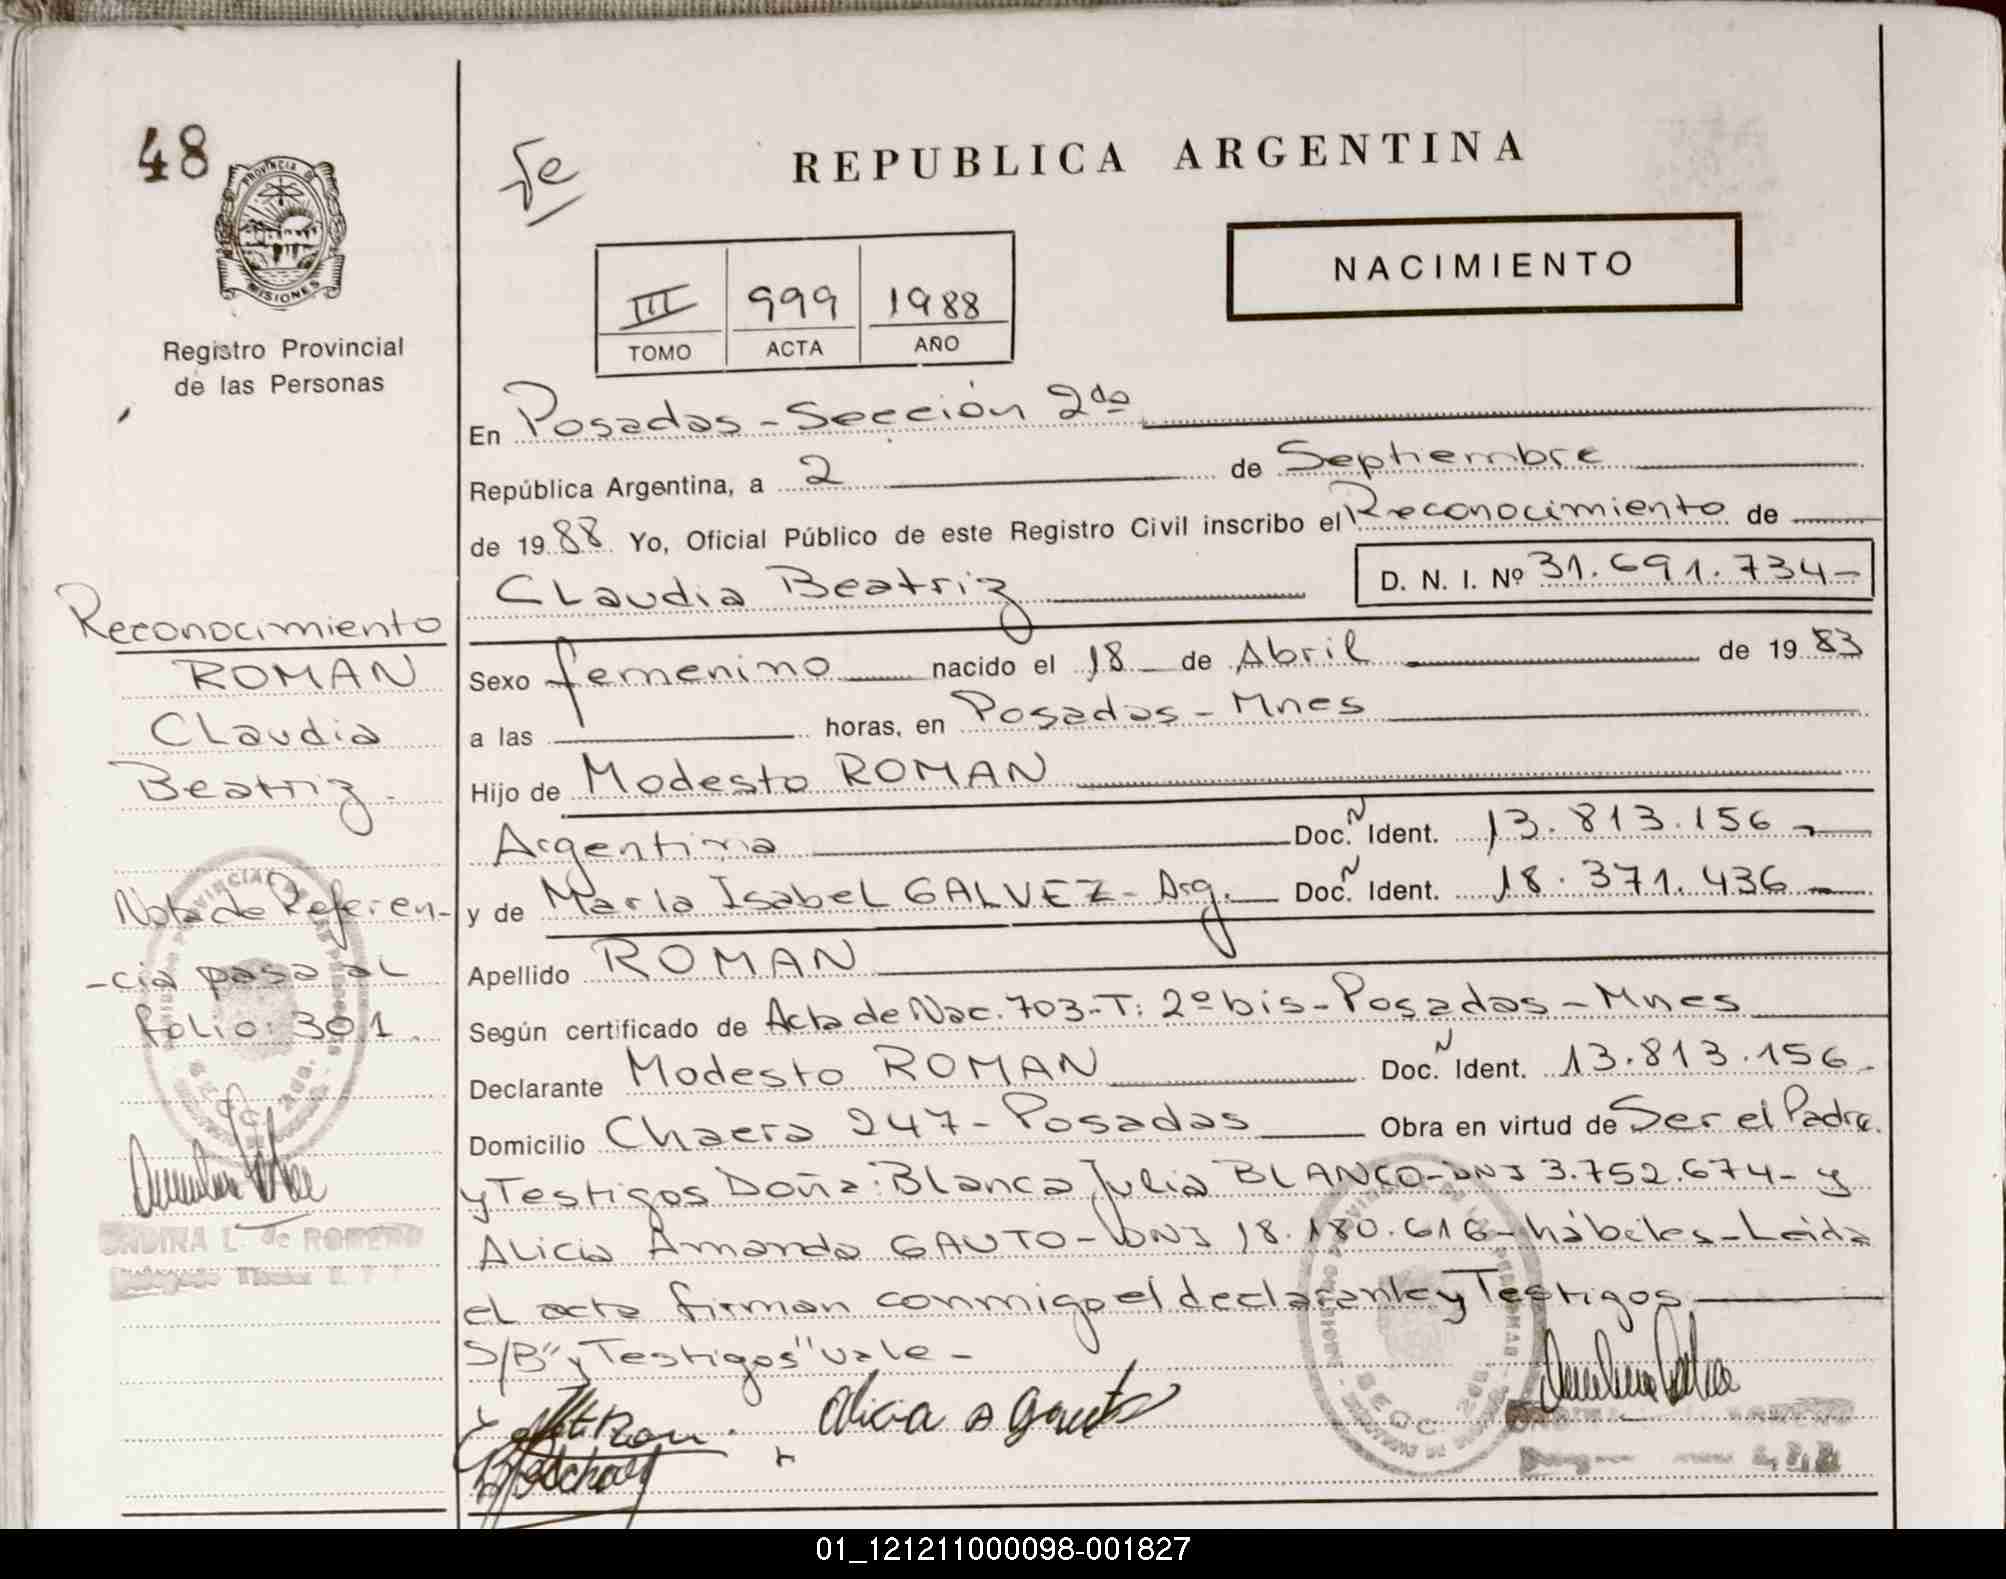 48
Fe
REPUBLICA ARGENTINA
PROVINCIA DE MISIONES
Registro Provincial
de las Personas
III 999 1988
TOMO ACTA AÑO
NACIMIENTO
En Posadas - Sección 2da
República Argentina, a 2 de Septiembre
de 1988 Yo, Oficial Público de este Registro Civil inscribo el Reconocimiento de
Claudia Beatriz D. N. I. Nº 31.691.734-
Sexo femenino nacido el 18 de Abril de 1983
a las horas, en Posadas - Mnes
Hijo de Modesto ROMAN
Argentina Doc. N Ident. 13.813.156-
y de María Isabel GALVEZ - Arg. Doc. N Ident. 18.371.436-
Apellido ROMAN
Según certificado de Acta de Nac. 703-T: 2º bis - Posadas - Mnes
Declarante Modesto ROMAN Doc. N Ident. 13.813.156.
Domicilio 247 - Posadas Obra en virtud de Ser el Padre.
y Testigos Doña: Blanca Julia BLANCO - DNI 3.752.674 - y
Alicia Amanda GAUTO - DNI 18.180.616 - hábiles - Leida
el acta firman conmigo el declarante y Testigos
S/B "y Testigos" vale -
Alicia A Gauto
Reconocimiento
ROMAN
Claudia
Beatriz.
Nota de Referen-
-cia pasa al
folio: 301.
ONDINA L. de ROMERO
01_121211000098-001827